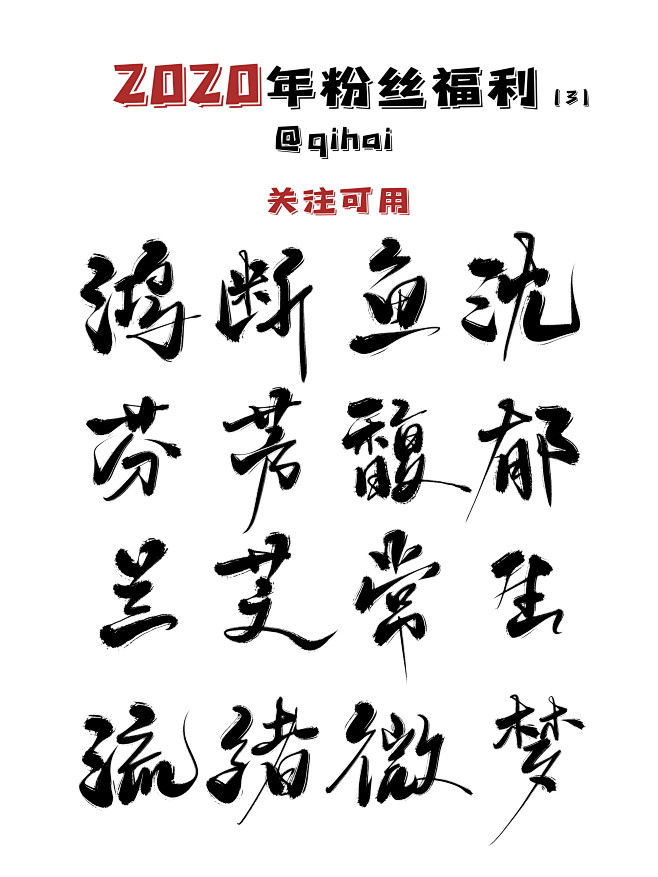 2020年粉丝福利(3)
@qihai
关注可用
鸿断鱼沈
芬芳馥郁
兰艾常生
流绪微梦